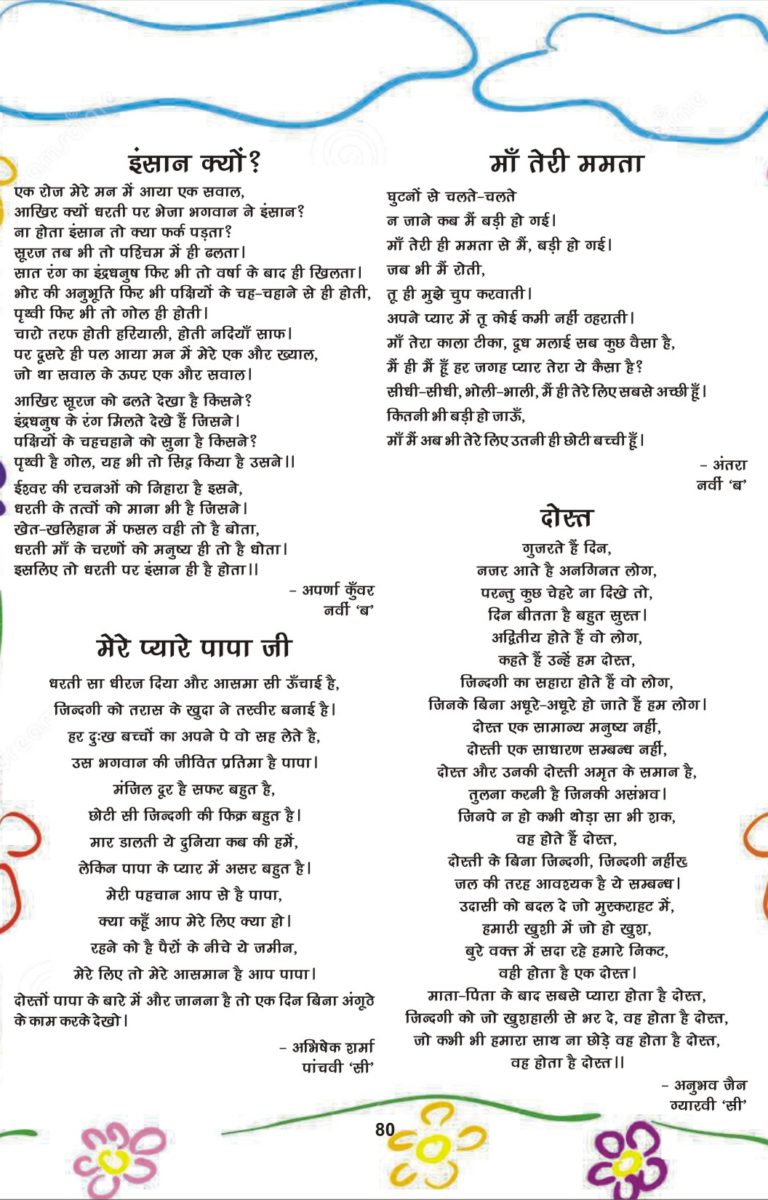 इंसान क्यों?
एक रोज मेरे मन में आया एक सवाल,
आखिर क्यों धरती पर भेजा भगवान ने इंसान?
ना होता इंसान तो क्या फर्क पड़ता?
सूरज तब भी तो पश्चिम में ही ढलता।
सात रंग का इंद्रधनुष फिर भी तो वर्षा के बाद ही खिलता।
भोर की अनुभूति फिर भी पक्षियों के चह-चहाने से ही होती,
पृथ्वी फिर भी तो गोल ही होती।
चारो तरफ होती हरियाली, होती नदियाँ साफ।
पर दूसरे ही पल आया मन में मेरे एक और ख्याल,
जो था सवाल के ऊपर एक और सवाल।
आखिर सूरज को ढलते देखा है किसने?
इंद्रधनुष के रंग मिलते देखे हैं जिसने।
पक्षियों के चहचहाने को सुना है किसने?
पृथ्वी है गोल, यह भी तो सिद्व किया है उसने।।
ईश्वर की रचनओं को निहारा है इसने,
धरती के तत्वों को माना भी है जिसने।
खेत-खलिहान में फसल वही तो है बोता,
धरती माँ के चरणों को मनुष्य ही तो है धोता।
इसलिए तो धरती पर इंसान ही है होता।।
- अपर्णा कुँवर
नवीं ‘ब’
मेरे प्यारे पापा जी
धरती सा धीरज दिया और आसमा सी ऊँचाई है,
जिन्दगी को तरास के खुदा ने तस्वीर बनाई है।
हर दुःख बच्चों का अपने पे वो सह लेते है,
उस भगवान की जीवित प्रतिमा है पापा।
मंजिल दूर है सफर बहुत है,
छोटी सी जिन्दगी की फिक्र बहुत है।
मार डालती ये दुनिया कब की हमें,
लेकिन पापा के प्यार में असर बहुत है।
मेरी पहचान आप से है पापा,
क्या कहूँ आप मेरे लिए क्या हो।
रहने को है पैरों के नीचे ये जमीन,
मेरे लिए तो मेरे आसमान है आप पापा।
दोस्तों पापा के बारे में और जानना है तो एक दिन बिना अंगूठे
के काम करके देखो।
- अभिषेक शर्मा
पांचवी ‘सी’
माँ तेरी ममता
घुटनों से चलते-चलते
न जाने कब मैं बड़ी हो गई।
माँ तेरी ही ममता से मैं, बड़ी हो गई।
जब भी मैं रोती,
तू ही मुझे चुप करवाती।
अपने प्यार में तू कोई कमी नहीं ठहराती।
माँ तेरा काला टीका, दूध मलाई सब कुछ वैसा है,
मैं ही मैं हूँ हर जगह प्यार तेरा ये कैसा है?
सीधी-सीधी, भोली-भाली, मैं ही तेरे लिए सबसे अच्छी हूँ।
कितनी भी बड़ी हो जाऊँ,
माँ मैं अब भी तेरे लिए उतनी ही छोटी बच्ची हूँ।
- अंतरा
नवीं ‘ब’
दोस्त
गुजरते हैं दिन,
नजर आते है अनगिनत लोग,
परन्तु कुछ चेहरे ना दिखे तो,
दिन बीतता है बहुत सुस्त।
अद्वितीय होते हैं वो लोग,
कहते हैं उन्हें हम दोस्त,
जिन्दगी का सहारा होते हैं वो लोग,
जिनके बिना अधूरे-अधूरे हो जाते हैं हम लोग।
दोस्त एक सामान्य मनुष्य नहीं,
दोस्ती एक साधारण सम्बन्ध नहीं,
दोस्त और उनकी दोस्ती अमृत के समान है,
तुलना करनी है जिनकी असंभव।
जिनपे न हो कभी थोड़ा सा भी शक,
वह होते हैं दोस्त,
दोस्ती के बिना जिन्दगी, जिन्दगी नहींख्
जल की तरह आवश्यक है ये सम्बन्ध।
उदासी को बदल दे जो मुस्कराहट में,
हमारी खुशी में जो हो खुश,
बुरे वक्त में सदा रहे हमारे निकट,
वही होता है एक दोस्त।
माता-पिता के बाद सबसे प्यारा होता है दोस्त,
जिन्दगी को जो खुशहाली से भर दे, वह होता है दोस्त,
जो कभी भी हमारा साथ ना छोड़े वह होता है दोस्त,
वह होता है दोस्त।।
- अनुभव जैन
ग्यारवी ‘सी’
80